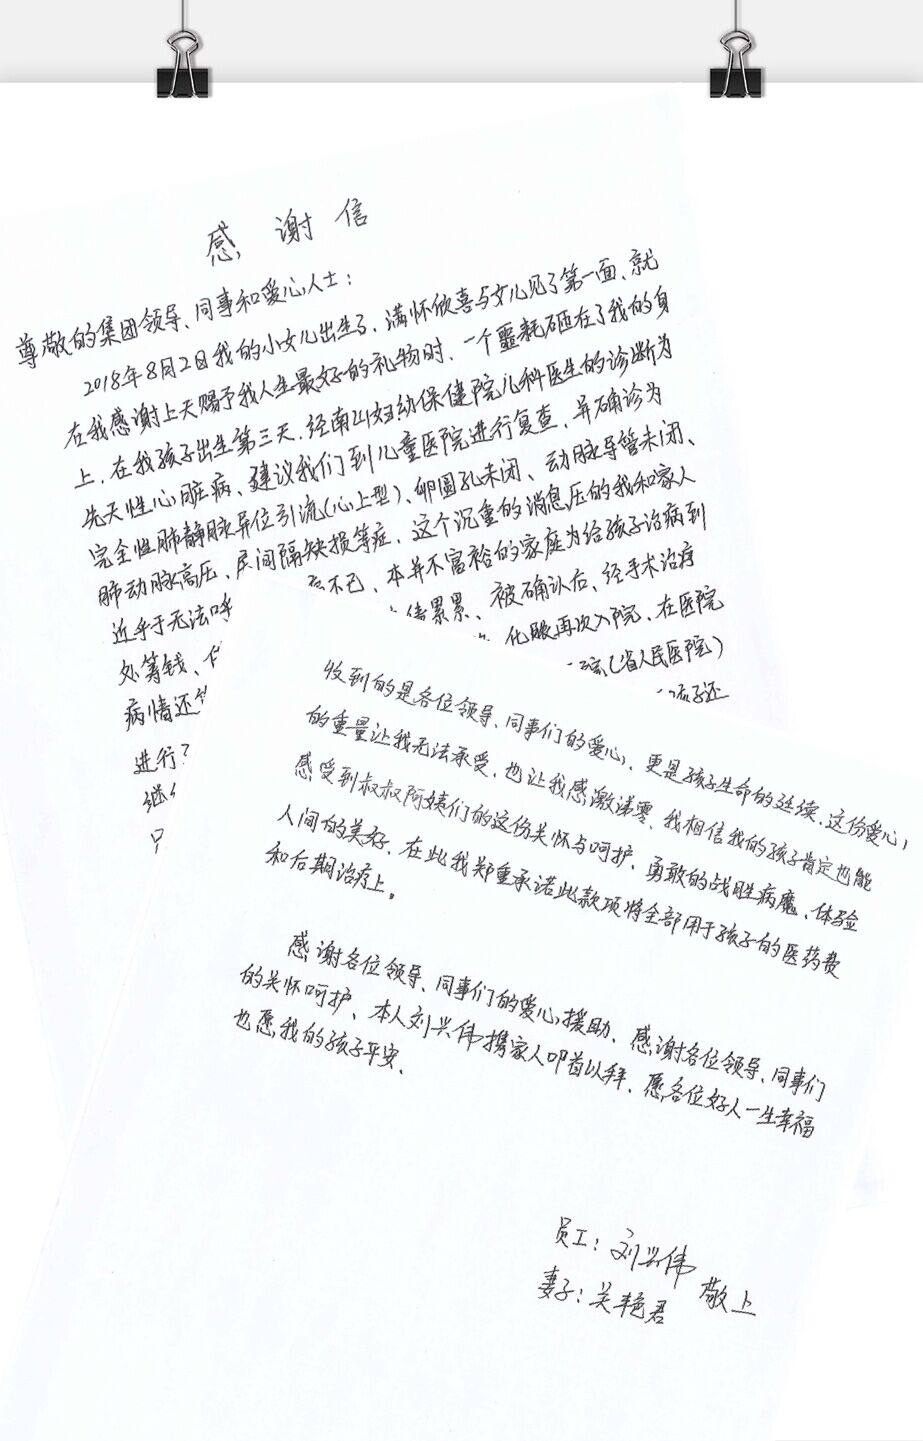 感谢信
尊敬的集团领导、同事和爱心人士：
2018年8月2日我的小女儿出生了、满怀欣喜与女儿见了第一面、就
在我感谢上天赐予我人生最好的礼物时、一个噩耗砸在了我的身
上、在我孩子出生第三天、经南山妇幼保健院儿科医生的诊断为
先天性心脏病、建议我们到儿童医院进行复查、并确诊为
完全性肺静脉异位引流(心上型)、卵圆孔未闭、动脉导管未闭、
肺动脉高压、房间隔缺损等症、这个沉重的消息压的我和家人
近乎于无法呼 不已、本并不富裕的家庭为给孩子治病到
处筹钱、 债累累、被确认后、经手术治疗
病情还 化脓再次入院、在医院
进行 院(省人民医院)
继 孩子还
收到的是各位领导、同事们的爱心、更是孩子生命的延续、这份爱心、
的重量让我无法承受、也让我感激涕零、我相信我的孩子肯定也能
感受到叔叔阿姨们的这份关怀与呵护、勇敢的战胜病魔、体验
人间的美好、在此我郑重承诺此款项将全部用于孩子的医药费
和后期治疗上。
感谢各位领导、同事们的爱心援助、感谢各位领导、同事们
的关怀呵护、本人刘兴伟携家人叩首以拜、愿各位好人一生幸福
也愿我的孩子平安、
员工：刘兴伟
妻子：吴艳君 敬上